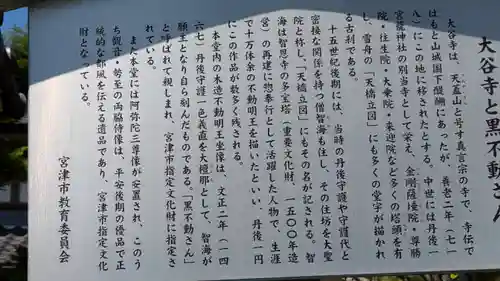 大谷寺と黒不動さん
大谷寺は、天蓋山と号す真言宗の寺で、寺伝で
はもと山城国下醍醐にあったが、養老二年(七一
八)にこの地に移されたとする。中世には丹後一
宮籠神社の別当寺として栄え、金剛薩埵院・尊勝
院・往生院・大乗院・来迎院など多くの塔頭を有
し、雪舟の「天橋立図」にも多くの堂宇が描かれ
る古刹である。
十五世紀後期には、当時の丹後守護や守護代と
密接な関係を持つ僧智海も住し、その住坊を大聖
院と称し、「天橋立図」にもその名が記される。智
海は智恩寺の多宝塔(重要文化財、一五〇〇年造
営)の再建に惣奉行として活躍した人物で、生涯
で十万体余の不動明王を描いたといい、丹後一円
にこの作品が数多く残される。
本堂内の木造不動明王坐像は、文正二年(一四
六七)丹後守護一色義直を大檀那として、智海が
願主となり自ら刻んだものである。「黒不動さん」
と呼ばれて親しまれ、宮津市指定文化財に指定さ
れている。
また本堂には阿弥陀三尊像が安置され、このう
ち観音・勢至の両脇侍像は、平安後期の優品で正
統的な都風を伝える遺品であり、宮津市指定文化
財となっている。
宮津市教育委員会